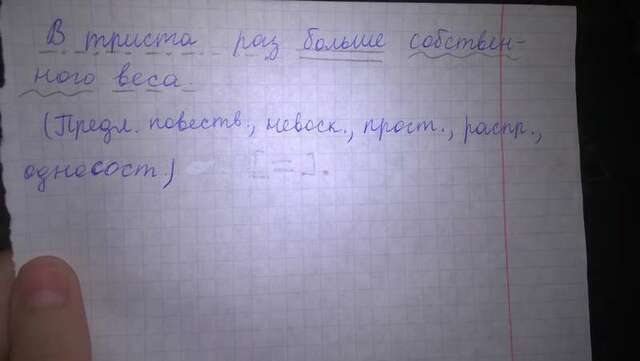 В триста раз больше собствен-
ного веса.
(Предл. повеств., невоск., прост., распр.,
односост.) [=].